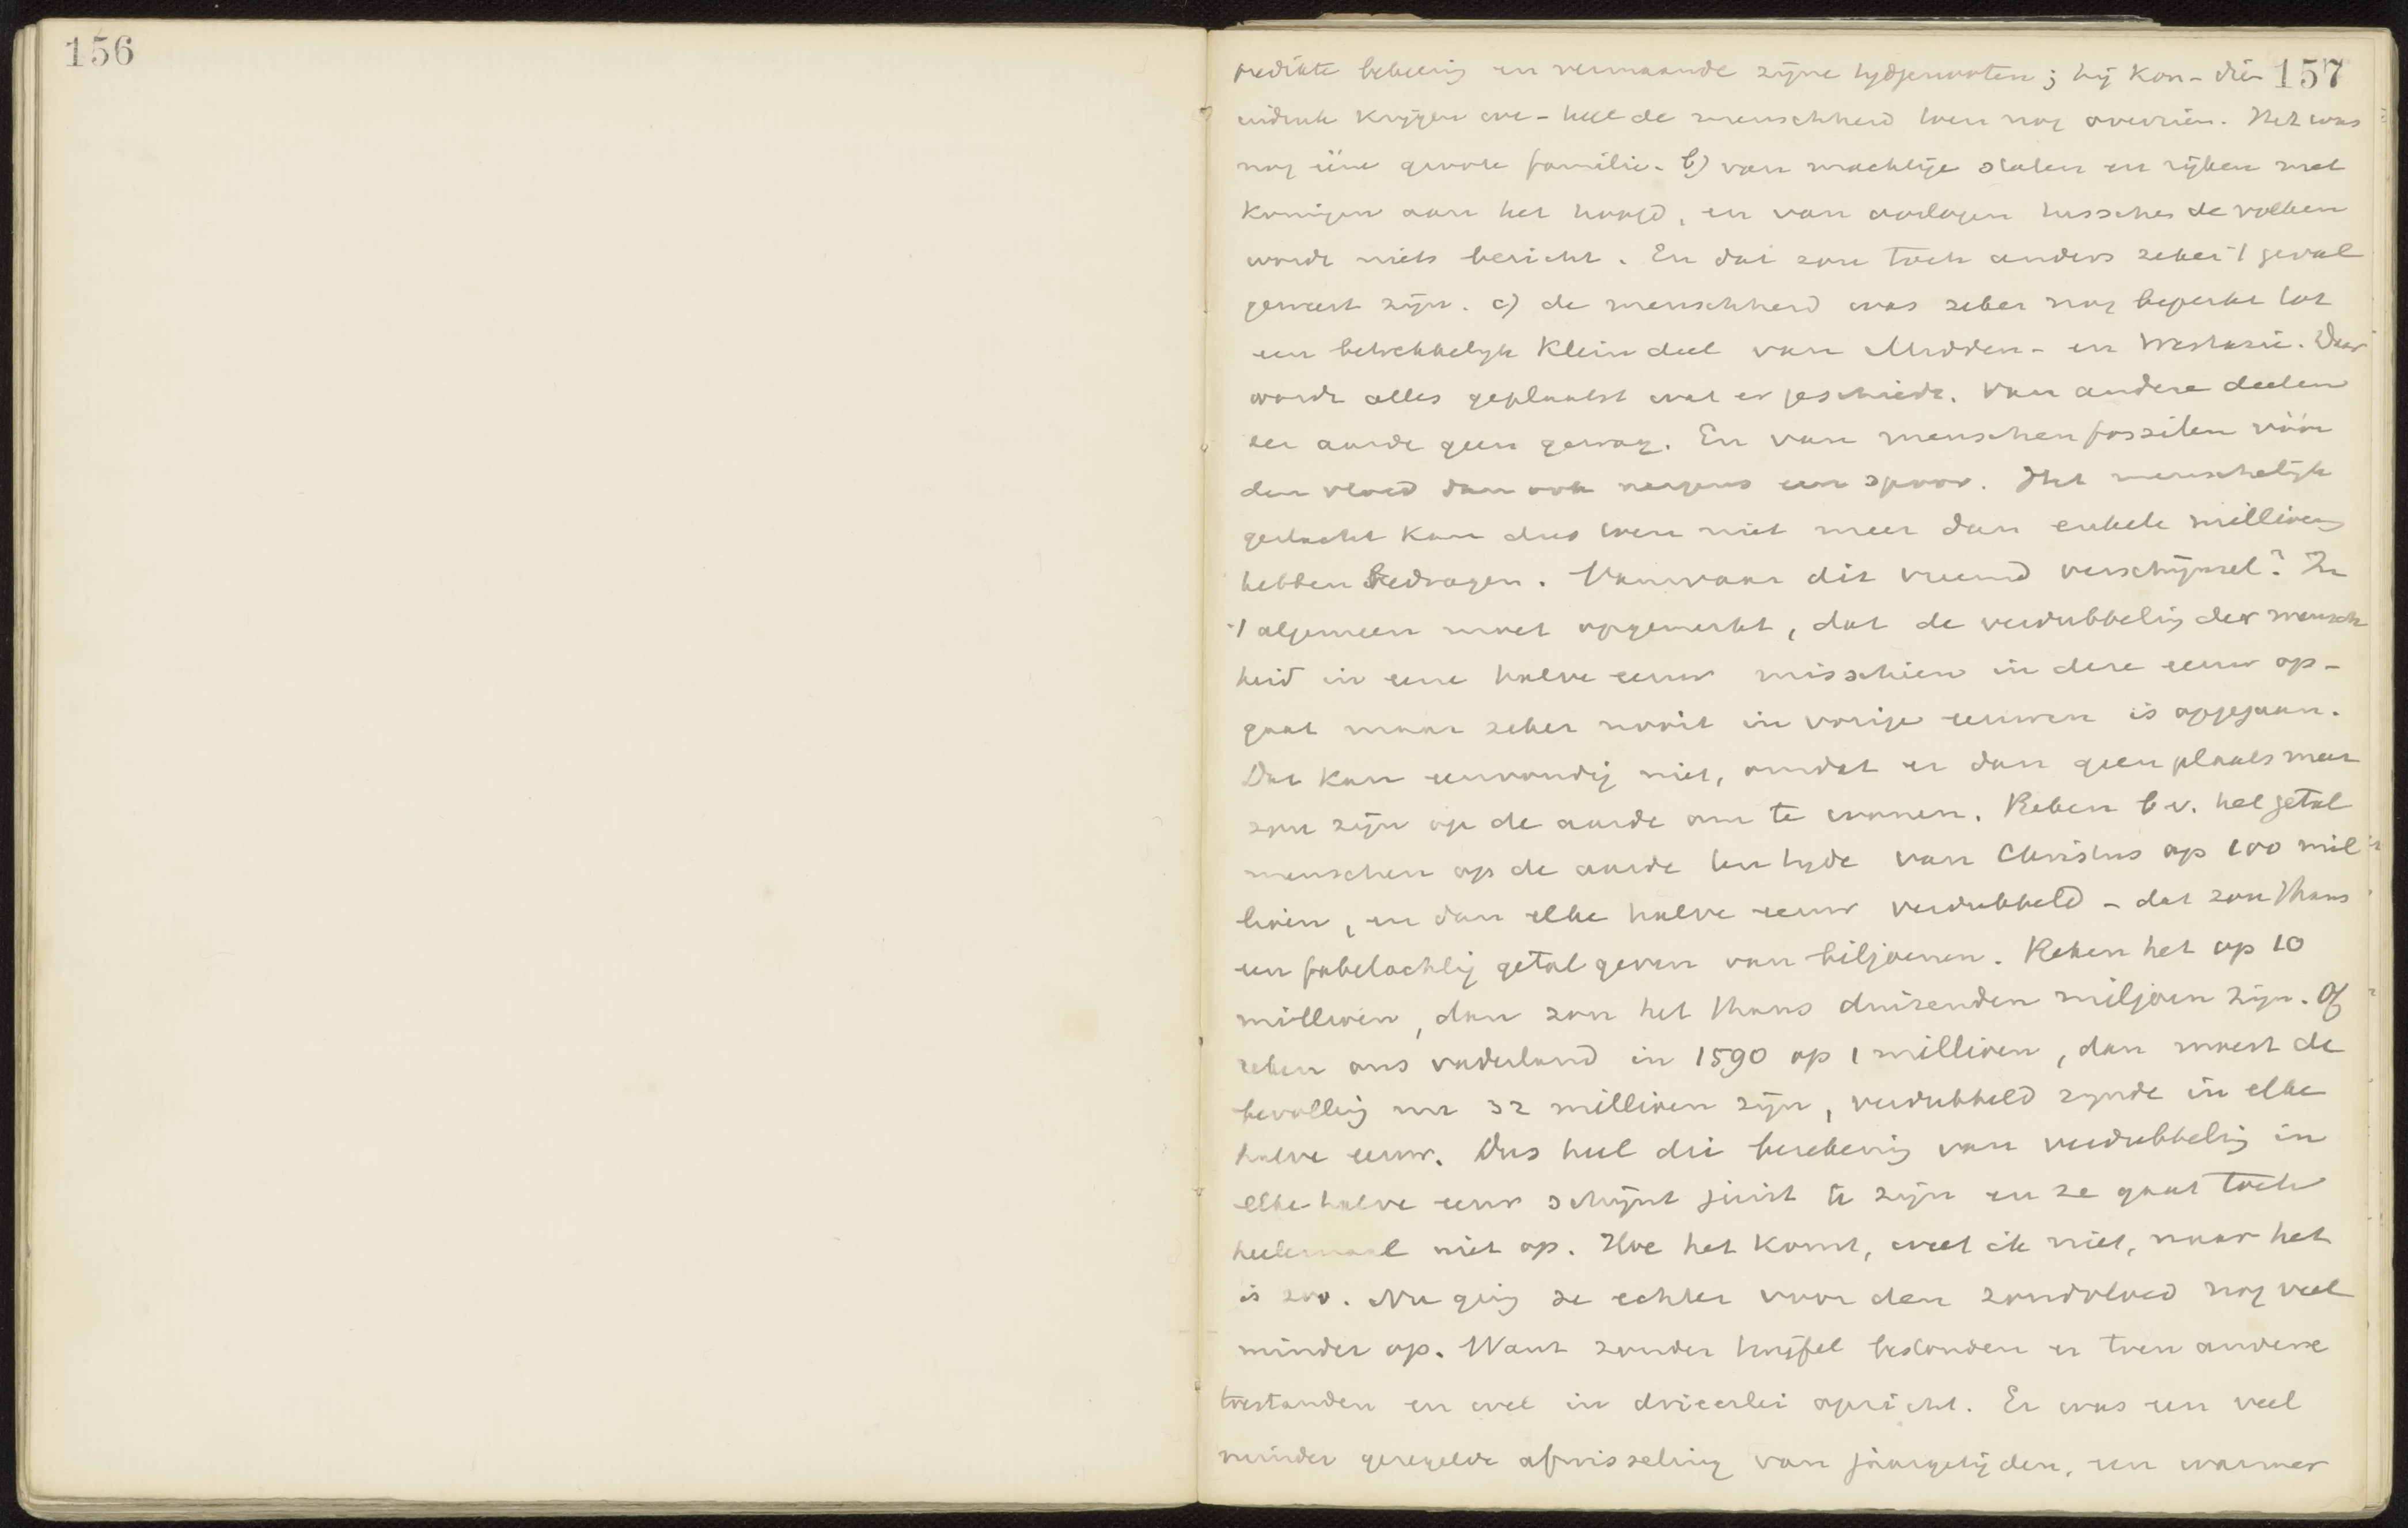 156
157
predikte bekeering en vermaande zijne tijdgenooten; hij kon - die
indruk krijgen we - heel de menschheid toen nog overzien. Het was
nog ééne groote familie. b) van machtige staten en rijken met
Koningen aan het hoofd, en van oorlogen tusschen de volken
wordt niets bericht. En dat zou toch anders zeker 't geval
geweest zijn. c) de menschheid was zeker nog beperkt tot
een betrekkelijk klein deel van Midden- en Westazië. Daar
wordt alles geplaatst wat er geschiedt. Van andere deelen
der aarde geen gewag. En van menschenfossilen vóór
den vloed dan ook nergens een spoor. Het menschelijk
geslacht kan dus toen niet meer dan enkele millioenen
hebben bedragen. Vanwaar dit vreemd verschijnsel? In
't algemeen moet opgemerkt, dat de verdubbeling der mensch
heid in eene halve eeuw misschien in deze eeuw op-
gaat maar zeker nooit in vorige eeuwen is opgegaan.
Dat kan eenvoudig niet, omdat er dan geen plaats meer
zou zijn op de aarde om te wonen. Reken b.v. het getal
menschen op de aarde ten tijde van Christus op 100 mil
lioen, en dan elke halve eeuw verdubbeld - dat zou thans
een fabelachtig getal geven van biljoenen. Reken het op 10
millioen, dan zou het thans duizenden miljoen zijn. Of
reken ons vaderland in 1590 op 1 millioen, dan moest de
bevolking nu 32 millioen zijn, verdubbeld zijnde in elke
halve eeuw. Dus heel die berekening van verdubbeling in
elke halve eeuw schijnt juist te zijn en ze gaat toch
heelemaal niet op. Hoe het komt, weet ik niet, maar het
is zoo. Nu ging ze echter voor den zondvloed nog veel
minder op. Want zonder twijfel bestonden er toen andere
toestanden en wel in drieerlei opzicht. Er was een veel
minder geregelde afwisseling van jaargetijden, een warmer